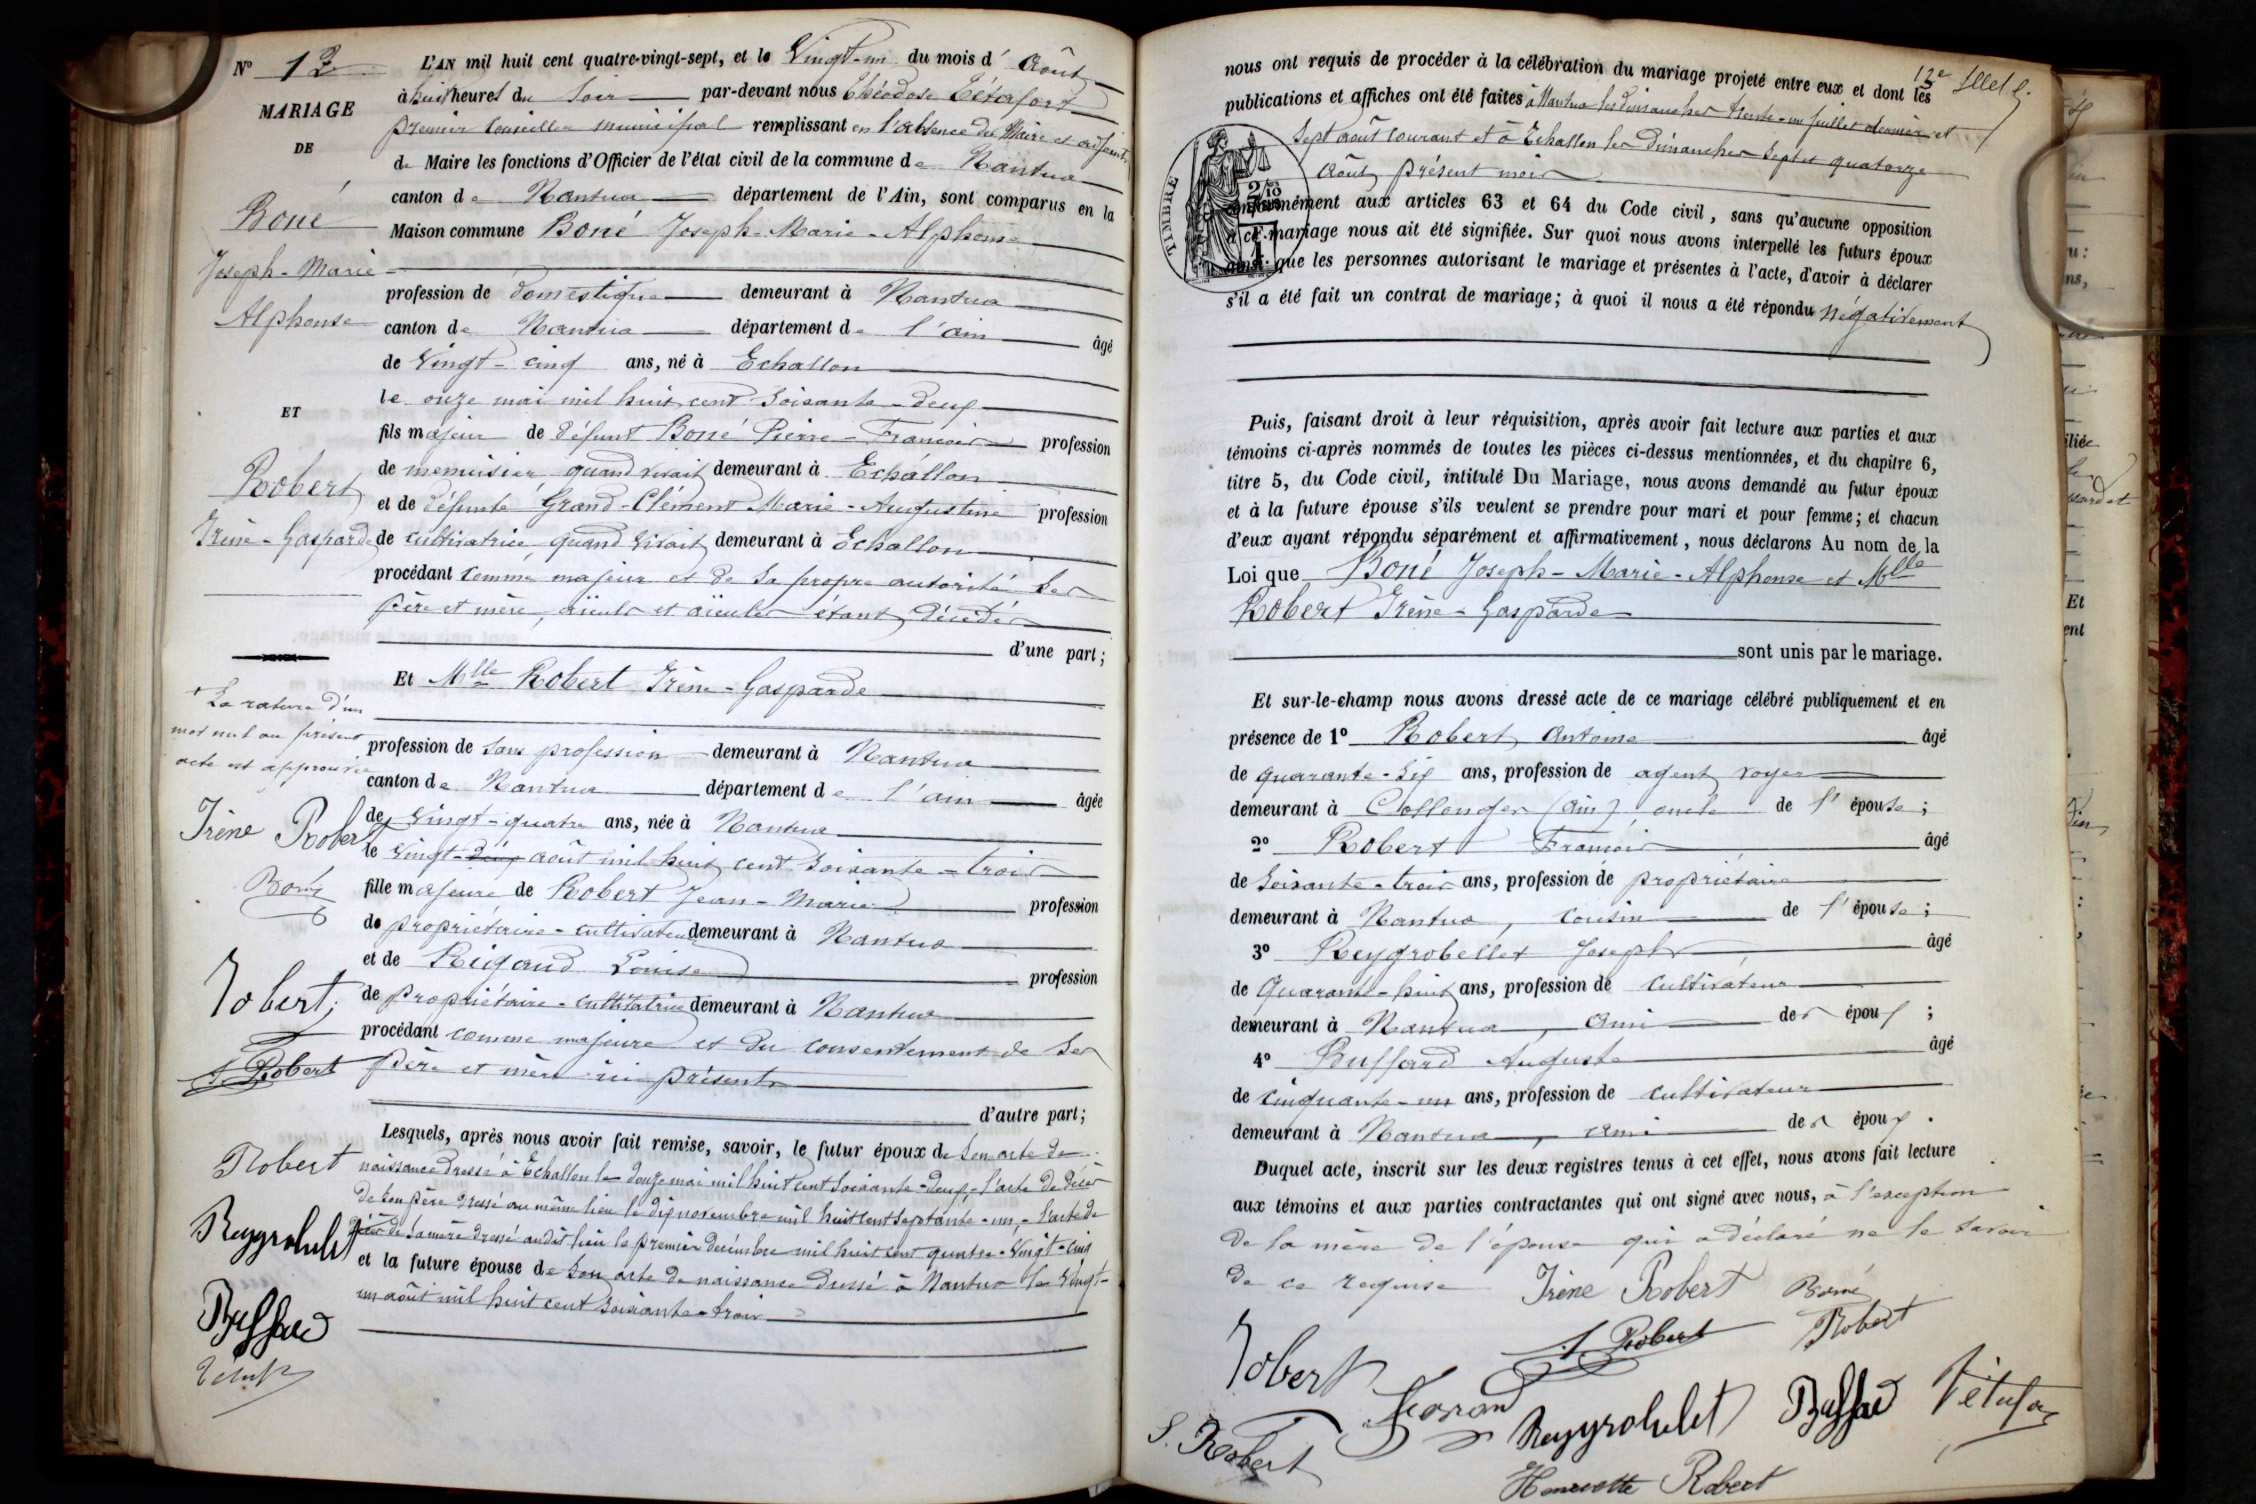 N° 12
MARIAGE
DE
Boné
Joseph-Marie
Alphonse
ET
Robert
Irène-Gasparde
+ La rature d'un
mot nul au présent
acte est approuvée
Irène Robert
Boné
Robert
A. Robert
Robert
Reygrobellet
Buffard
L'AN mil huit cent quatre-vingt-sept, et le Vingt-un du mois d' Août
à huit heures du Soir par-devant nous Théodose
premier Conseiller municipal remplissant en l'absence du Maire et adjoint,
de Maire les fonctions d'Officier de l'état civil de la commune de Nantua
canton de Nantua département de l'Ain, sont comparus en la
Maison commune Boné Joseph-Marie-Alphonse
profession de domestique demeurant à Nantua
canton de Nantua département de l'ain âgé
de Vingt-cinq ans, né à Echallon
le onze mai mil huit cent soixante-deux
fils majeur de défunt Boné Pierre-François profession
de menuisier quand vivait demeurant à Echallon
et de défunte Grand-Clément Marie-Augustine profession
de cultivatrice, quand vivait demeurant à Echallon
procédant comme majeur et de sa propre autorité ses
père et mère, aïeuls et aïeules étant décédés
d'une part;
Et Mlle Robert Irène-Gasparde
profession de sans profession demeurant à Nantua
canton de Nantua département de l'ain âgée
de Vingt-quatre ans, née à Nantua
le Vingt-deux août mil huit cent soixante-trois
fille majeure de Robert Jean-Marie profession
de propriétaire-cultivateur demeurant à Nantua
et de Rigaud Louise profession
de propriétaire-cultivatrice demeurant à Nantua
procédant comme majeure et du consentement de ses
père et mère ici présents
d'autre part;
Lesquels, après nous avoir fait remise, savoir, le futur époux de Son acte de
naissance dressé à Echallon le douze mai mil huit cent soixante-deux, l'acte de décès
de son père dressé au même lieu le dix novembre mil huit cent septante-un, l'acte de
décès de sa mère dressé audit lieu le premier décembre mil huit cent quatre-vingt-cinq
et la future épouse de Son acte de naissance dressé à Nantua le Vingt-
un août mil huit cent soixante-trois
12e
nous ont requis de procéder à la célébration du mariage projeté entre eux et dont les
publications et affiches ont été faites à Nantua les dimanches trente-un juillet dernier et
Sept août courant et à Echallon les dimanches sept et quatorze
Août présent mois
TIMBRE
conformément aux articles 63 et 64 du Code civil, sans qu'aucune opposition
à ce mariage nous ait été signifiée. Sur quoi nous avons interpellé les futurs époux
ainsi que les personnes autorisant le mariage et présentes à l'acte, d'avoir à déclarer
s'il a été fait un contrat de mariage; à quoi il nous a été répondu négativement
Puis, faisant droit à leur réquisition, après avoir fait lecture aux parties et aux
témoins ci-après nommés de toutes les pièces ci-dessus mentionnées, et du chapitre 6,
titre 5, du Code civil, intitulé Du Mariage, nous avons demandé au futur époux
et à la future épouse s'ils veulent se prendre pour mari et pour femme; et chacun
d'eux ayant répondu séparément et affirmativement, nous déclarons Au nom de la
Loi que Boné Joseph-Marie-Alphonse et Mlle
Robert Irène-Gasparde
sont unis par le mariage.
Et sur-le-champ nous avons dressé acte de ce mariage célébré publiquement et en
présence de 1° Robert Antoine âgé
de quarante-six ans, profession de agent voyer
demeurant à Collonges (Ain), oncle de l'épouse;
2° Robert François âgé
de soixante-trois ans, profession de propriétaire
demeurant à Nantua, cousin de l'épouse;
3° Reygrobellet Joseph âgé
de Quarante-huit ans, profession de cultivateur
demeurant à Nantua, ami des époux;
4° Buffard Auguste âgé
de cinquante-un ans, profession de cultivateur
demeurant à Nantua, ami des époux.
Duquel acte, inscrit sur les deux registres tenus à cet effet, nous avons fait lecture
aux témoins et aux parties contractantes qui ont signé avec nous, à l'exception
de la mère de l'épouse qui a déclaré ne le savoir
de ce requise
Irène Robert Boné
Robert A. Robert Robert
S. Robert Reygrobellet Buffard
Henriette Robert